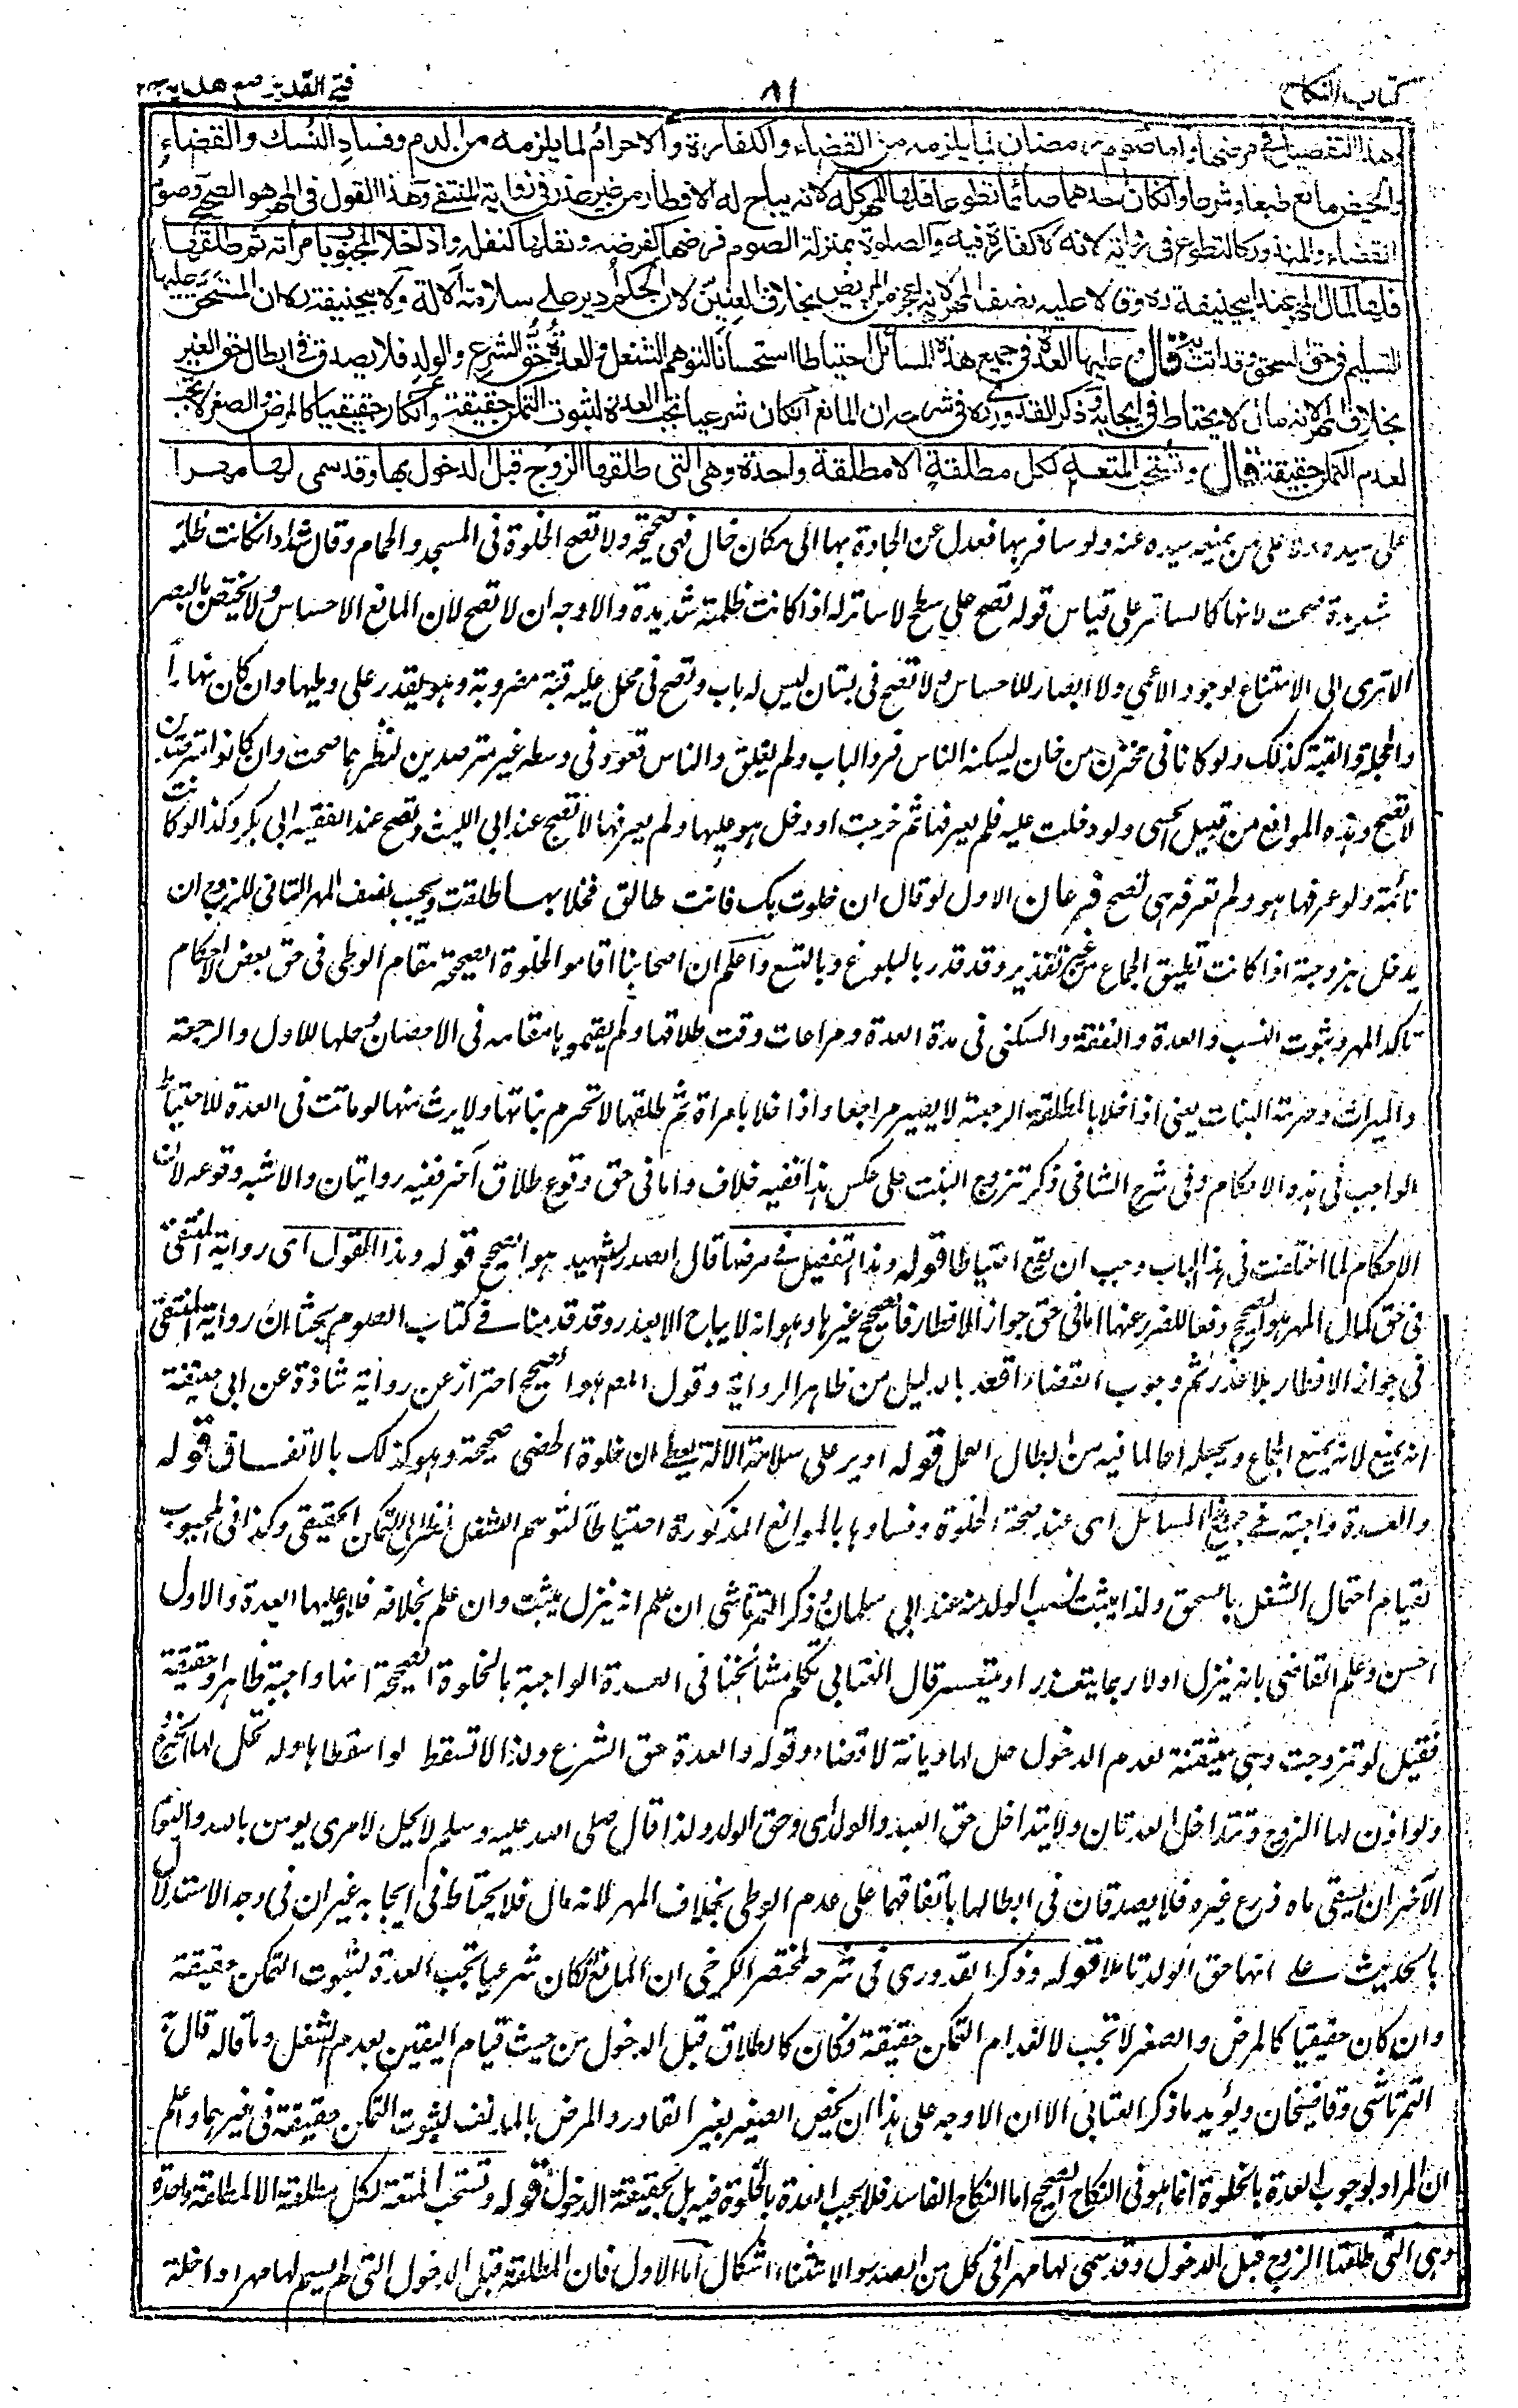 كتاب النكاح
٨١
فتح القدير مع هدايه ج٢
وهذا التفصيل في مرضها واما صوم رمضان لما يلزمه من القضاء والكفارة والاحرام لما يلزمه من الدم وفساد النسك والقضاء
والحيض مانع طبعا وشرعا وان كان احدهما صائما تطوعا فلها المهر كله لانه يباح له الافطار من غير عذر في رواية المنتقى وهذا القول في المهر هو الصحيح وصوم
القضاء والمنذور كالتطوع في رواية لانه لا كفارة فيه والصلوة بمنزلة الصوم فرضها كفرضه ونفلها كنفله واذا خلا المجبوب بامرأته ثم طلقها
فلها كمال المهر عند ابي حنيفة رح وقالا عليه نصف المهر لانه اعجز من المريض بخلاف العنين لان الحكم ادير على سلامة الآلة ولابي حنيفة رح ان المستحق عليها
التسليم في حق السحق وقد اتت به قال وعليها العدة في جميع هذه المسائل احتياطا استحسانا لتوهم الشغل والعدة حق الشرع والولد فلا يصدق في ابطال حق الغير
بخلاف المهر لانه مال لا يحتاط في ايجابه وذكر القدوري رح في شرحه ان المانع ان كان شرعيا تجب العدة لثبوت التمكن حقيقة وان كان حقيقيا كالمرض والصغر لا تجب
لعدم التمكن حقيقة قال وتستحب المتعة لكل مطلقة الا مطلقة واحدة وهى التى طلقها الزوج قبل الدخول بها وقد سمى لها مهرا
على سيده عدة على من يمنعه سيده عنه ولو سافر بها فعدل عن الجادة بها الى مكان خال فهى صحيحة ولا تصح الخلوة فى المسجد والحمام وقال شداد ان كانت ظلمة
شديدة صحت لانها كالساتر على قياس قوله تصح على سطح لا ساتر له اذا كانت ظلمته شديدة والاوجه ان لا تصح لان المانع الاحساس ولا يختص بالبصر
الا ترى الى الامتناع لوجود الاعمى ولا ابصار للاحساس ولا تصح فى بستان ليس له باب وتصح فى محمل عليه قبة مضروبة وهو يقدر على وطيها وان كان نهارا
والحجلة والقبة كذلك ولو كانا فى مخزن من خان يسكنه الناس فرد الباب ولم يغلق والناس قعود فى وسطه غير مترصدين لنظرهما صحت وان كانوا مترصدين
لا تصح وهذه الموانع من قبيل الحسى ولو دخلت عليه فلم يعرفها ثم خرجت او دخل هو عليها ولم يعرفها لا تصح عند ابى الليث وتصح عند الفقيه ابى بكر وكذا لو كانت
نائمة ولو عرفها هو ولم تعرفه هى تصح فرعان الاول لو قال ان خلوت بك فانت طالق فخلا بها طلقت ويجب نصف المهر الثانى للزوج ان
يدخل بزوجته اذا كانت تطيق الجماع من غير تقدير وقد قدر بالبلوغ وبالتسع واعلم ان اصحابنا اقاموا الخلوة الصحيحة مقام الوطى فى حق بعض الاحكام
تاكد المهر وثبوت النسب والعدة والنفقة والسكنى فى مدة العدة ومراعات وقت طلاقها ولم يقيموها مقامه فى الاحصان وحلها للاول والرجعة
والميراث وحرمة البنات يعنى اذا خلا بالمطلقة الرجعية لا يصير مراجعا واذا خلا بامراة ثم طلقها لا تحرم بناتها ولا يرث منها لو ماتت فى العدة للاحتياط
الواجب فى هذه الاحكام وفى شرح الشافى ذكر تزوج البنت على عكس هذا ففيه خلاف واما فى حق وقوع طلاق آخر ففيه روايتان والاشبه وقوعه لان
الاحكام لما اختلفت فى هذا الباب وجب ان يقع احتياطا قوله وهذا التفصيل فى مرضها قال الصدر الشهيد هو الصحيح قوله وهذا القول اى رواية المنتقى
فى حق كمال المهر هو الصحيح دفعا للضرر عنها اما فى حق جواز الافطار فالصحيح غيرها وهو انه لا يباح الا بعذر وقد قدمنا فى كتاب الصوم بحثا ان رواية المنتقى
فى جواز الافطار بلا عذر ثم وجوب القضاء اقعد بالدليل من ظاهر الرواية وقول المص هو الصحيح احتراز عن رواية شاذة عن ابى حنيفة
انه يمنع لانه يمنع الجماع ويجعله اثما لما فيه من ابطال العمل قوله ادير على سلامة الآلة يعطى ان خلوة الخصى صحيحة وهو كذلك بالاتفاق قوله
والعدة واجبة فى جميع المسائل اى عند صحة الخلوة وفسادها بالموانع المذكورة احتياطا لتوهم الشغل نظرا الى التمكن الحقيقى وكذا فى المجبوب
لقيام احتمال الشغل بالسحق ولذا يثبت نسب الولد منه عند ابى سليمان وذكر التمرتاشى ان علم انه ينزل يثبت وان علم بخلافه فلا وعليها العدة والاول
احسن وعلم القاضى بانه ينزل اولا ربما يتعذر او يتعسر قال العتابى تكلم مشائخنا فى العدة الواجبة بالخلوة الصحيحة انها واجبة ظاهرا او حقيقة
فقيل لو تزوجت وهى متيقنة لعدم الدخول حل لها ديانة لا قضاء وقوله والعدة حق الشرع ولذا لا تسقط لو اسقطاها ولا تحل لها الخروج
ولو اذن لها الزوج وتتداخل العدتان ولا يتداخل حق العبد والولد اى وحق الولد ولذا قال صلى الله عليه وسلم لا يحل لامرئ يومن بالله واليوم
الآخر ان يسقى ماءه زرع غيره فلا يصدقان فى ابطالها باتفاقهما على عدم الوطى بخلاف المهر لانه مال فلا يحتاط فى ايجابه غير ان فى وجه الاستدلال
بالحديث على انها حق الولد تاملا قوله وذكر القدورى فى شرحه لمختصر الكرخى ان المانع ان كان شرعيا تجب العدة لثبوت التمكن حقيقة
وان كان حقيقيا كالمرض والصغر لا تجب لانعدام التمكن حقيقة فكان كالطلاق قبل الدخول من حيث قيام اليقين بعدم الشغل وما قاله قال به
التمرتاشى وقاضيخان ويؤيده ما ذكر العتابى الا ان الاوجه على هذا ان يخص الصغير بغير القادر والمرض بالمدنف لثبوت التمكن حقيقة فى غيرهما واعلم
ان المراد بوجوب العدة بالخلوة انما هو فى النكاح الصحيح اما النكاح الفاسد فلا يجب العدة بالخلوة فيه بل بحقيقة الدخول قوله وتستحب المتعة لكل مطلقة الا المطلقة واحدة
وهى التى طلقها الزوج قبل الدخول وقد سمى لها مهرا فى كل من الصدر والاستثناء اشكال اما الاول فان المطلقة قبل الدخول التى لم يسم لها مهرا داخلة